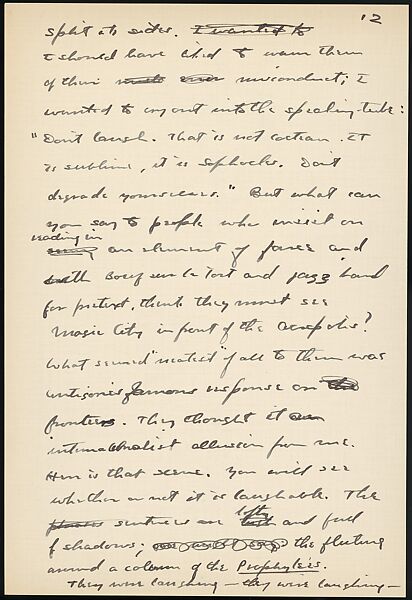 12
split its sides. I wanted to
I should have liked to warn them
of their misconduct; I
wanted to cry out into the speaking tube:
"Don't laugh. That is not Cocteau. It
is sublime, it is Sophocles. Don't
degrade yourselves." But what can
you say to people who insist on
reading in
an element of farce and
with Boeuf sur le Toit and jazz band
for pretext, think they must see
Magic City in front of the Acropolis?
What seemed "neatest" of all to them was
Antigone's famous response on the
frontiers. They thought it an
internationalist allusion from me.
Here is that scene. You will see
whether or not it is laughable. The
sentences are lofty and full
of shadows; the fluting
around a column of the Prophyleës.
They were laughing — they were laughing —